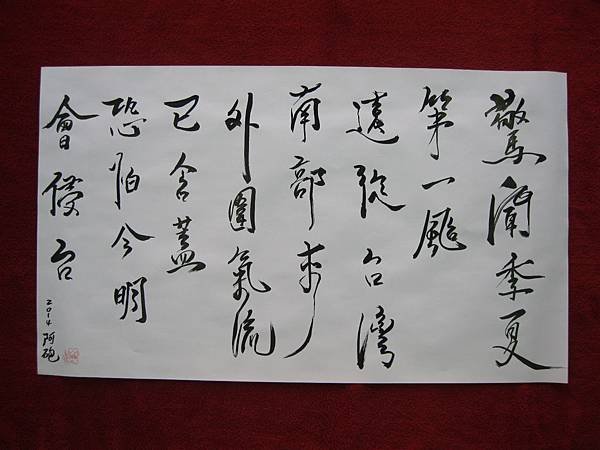 驚聞季夏
第一颱
遠從台灣
南部來
外圍氣流
已含蓋
恐怕今明
會侵台
2014 阿砲